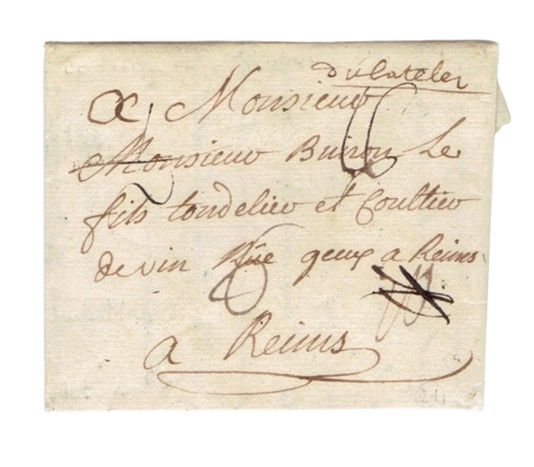 du Cateler
a Monsieur
Monsieur Buiron Le
fils tondelier et Coultier
de vin Rüe geux a Reims
a Reims